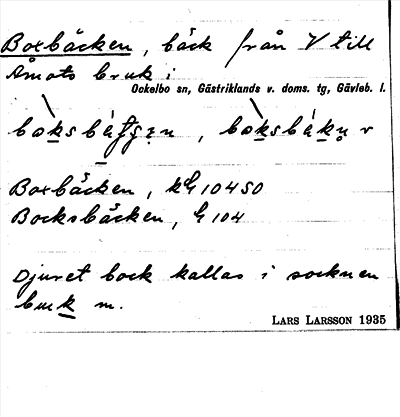 Boxbäcken, bäck från V till
Åmots bruk i
Ockelbo sn, Gästriklands v. doms. tg, Gävleb. l.
Boxbäcken, 10450
Bocksbäcken, 104
Djuret bock kallas i socknen
buck m.
LARS LARSSON 1935